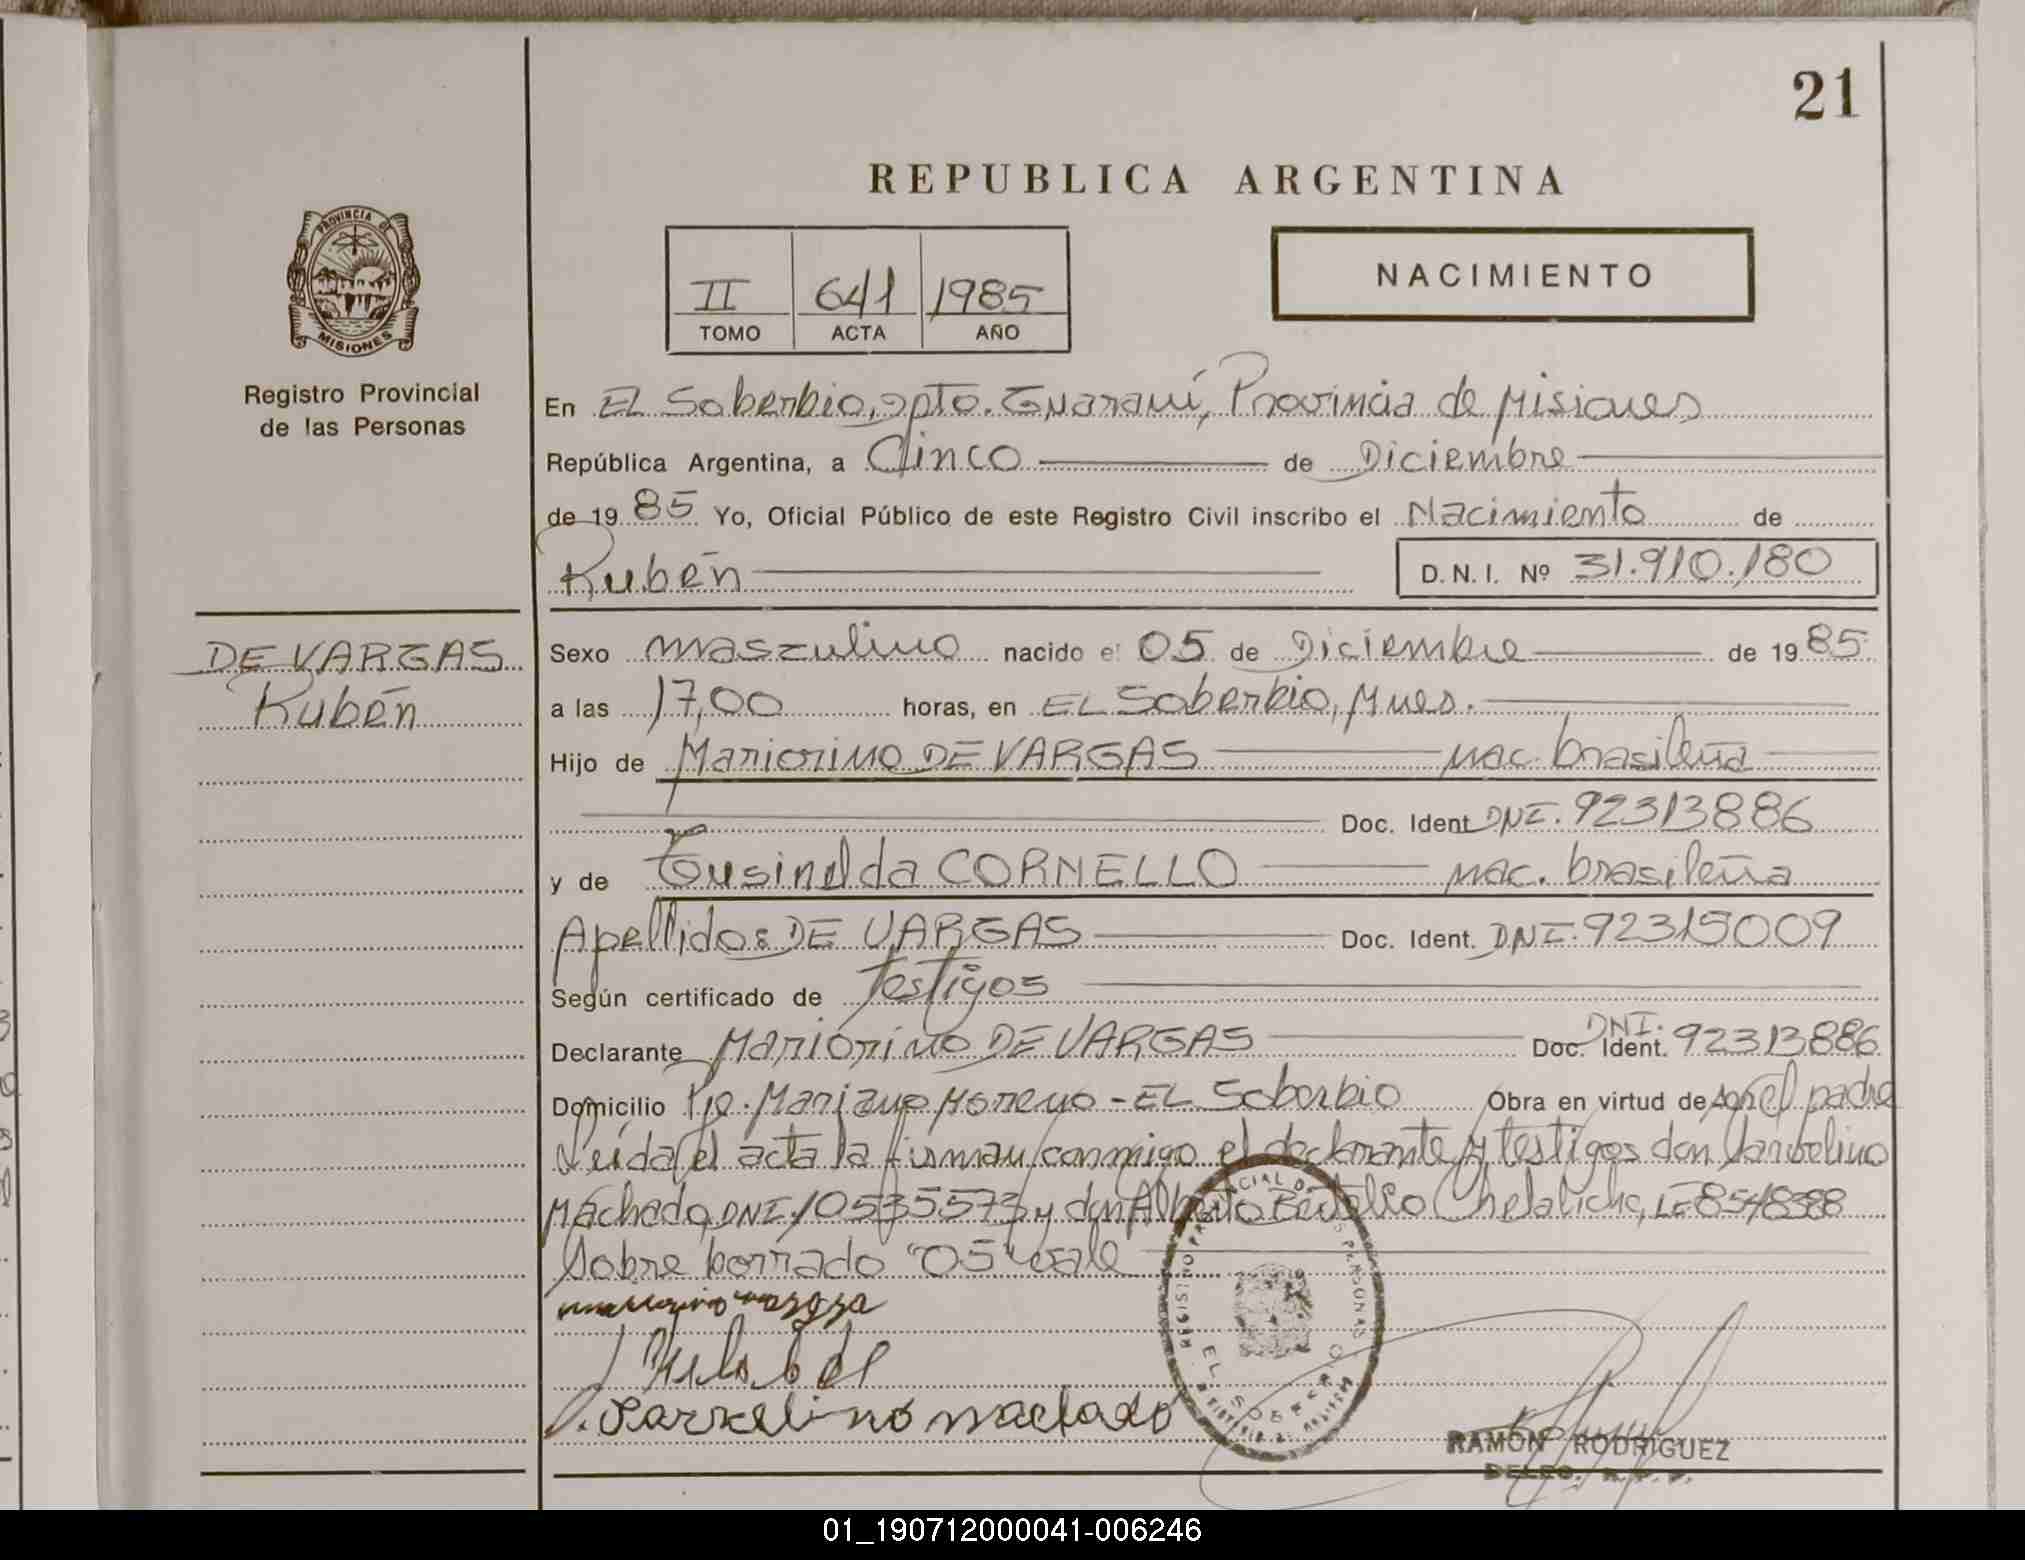 21
REPUBLICA ARGENTINA
PROVINCIA DE
MISIONES
Registro Provincial
de las Personas
II 641 1985
TOMO ACTA AÑO
NACIMIENTO
En EL Soberbio, Dpto. Guaraní, Provincia de Misiones
República Argentina, a Cinco de Diciembre
de 1985 Yo, Oficial Público de este Registro Civil inscribo el Nacimiento de
Rubén D.N.I. Nº 31.910.180
DE VARGAS
Rubén
Sexo masculino nacido el 05 de Diciembre de 1985
a las 17,00 horas, en EL Soberbio, Mnes.
Hijo de Mariorino DE VARGAS nac. brasileña
Doc. Ident DNI. 92313886
y de Gusinelda CORNELLO nac. brasileña
Apellidos DE VARGAS Doc. Ident. DNI. 92315009
Según certificado de testigos
Declarante Mariorino DE VARGAS Doc. Ident. DNI. 92313886
Domicilio Pje. Mariano Moreno - EL Soberbio Obra en virtud de ser el padre
Leída el acta la firman conmigo el declarante y testigos don
Machado, DNI. 10535573 y don Alberto LE 8548388
Sobre borrado "05" vale
machado
EL SOBERBIO
RAMÓN RODRIGUEZ
DELEG. R. P. P.
01_190712000041-006246